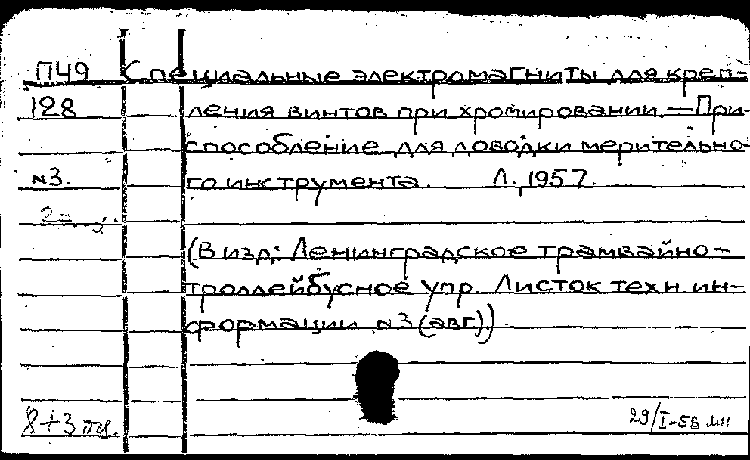 П49 Специальные электромагниты для креп-
128 ления винтов при хромировании. — При-
способление для доводки мерительно-
№3. го инструмента. Л., 1957.
(В изд: Ленинградское трамвайно-
троллейбусное упр. Листок техн. ин-
формации №3 (авг))
8+3 29/I-58